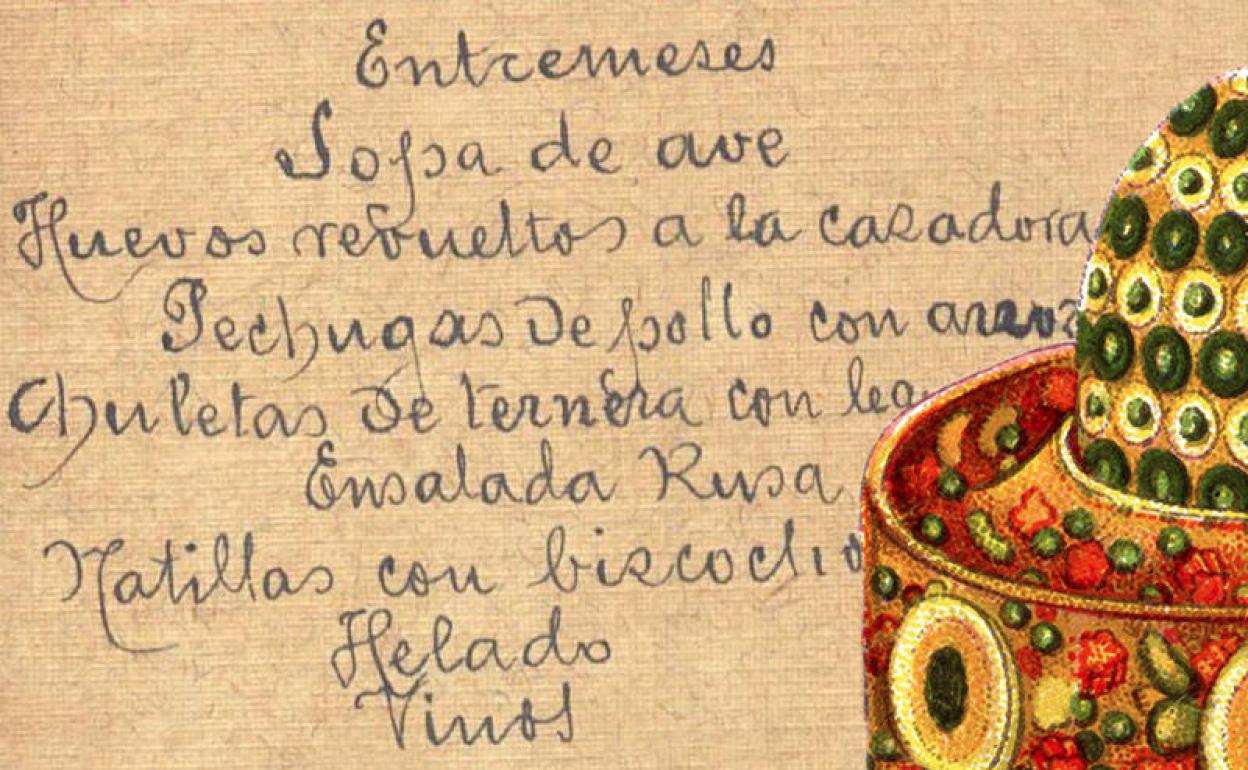 Entremeses
Sopa de ave
Huevos revueltos a la casadora
Pechugas de pollo con arroz
Chuletas de ternera con
Ensalada Rusa
Natillas con biscocho
Helado
Vinos